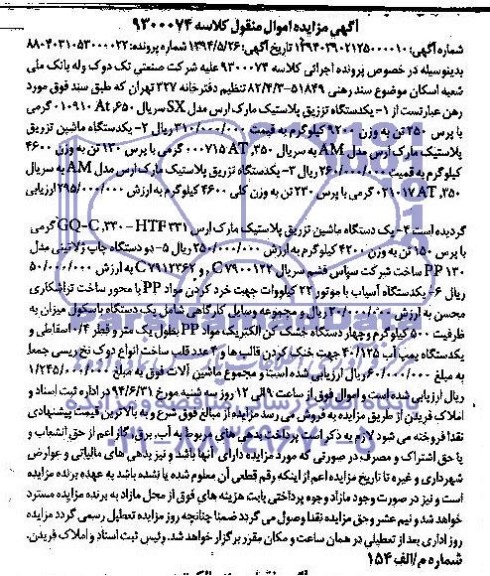 آگهی مزایده اموال منقول کلاسه ۹۳۰۰۰۷۴
شماره آگهی: ۱۳۹۴۰۳۹۰۲۱۲۵۰۰۰۰۱۰ تاریخ آگهی: ۱۳۹۴/۵/۲۶ شماره پرونده: ۸۸۰۴۰۳۱۰۵۳۰۰۰۰۲۲
بدینوسیله در خصوص پرونده اجرائی کلاسه ۹۳۰۰۰۷۴ علیه شرکت صنعتی تک دوک و له بانک ملی
شعبه اسکان موضوع سند رهنی ۵۱۸۴۹-۸۲/۴/۳ تنظیم دفترخانه ۳۲۷ تهران که طبق سند فوق مورد
رهن عبارتست از ۱- یکدستگاه تزریق پلاستیک مارک ارس مدل SX سریال ۶۵۰، At ۰۱۰۹۱۰ گرمی
با پرس ۲۵۰ تن به وزن ۹۲۰۰ کیلوگرم به قیمت ۳۱۰/۰۰۰/۰۰۰ ریال ۲- یکدستگاه ماشین تزریق
پلاستیک مارک ارس مدل AM به سریال ۳۵۰، AT ۰۰۰۷۱۵ گرمی با پرس ۱۳۰ تن به وزن ۴۶۰۰
کیلوگرم به قمیت ۲۶۰/۰۰۰/۰۰۰ ریال ۳- یکدستگاه تزریق پلاستیک مارک ارس مدل AM به سریال
۳۵۰، AT ۰۲۱۰۱۷ گرمی با پرس ۲۳۰ تن به وزن کلی ۴۶۰۰ کیلوگرم به ارزش ۲۹۵/۰۰۰/۰۰۰ ارزیابی
گردیده است ۴- یک دستگاه ماشین تزریق پلاستیک مارک ارس GQ-C,۳۳۰ - HTF۳۳۱ گرمی
با پرس ۱۵۰ تن به وزن ۴۲۰۰ کیلوگرم به ارزش ۲۵۰/۰۰۰/۰۰۰ ریال ۵- دو دستگاه چاپ ژلاتینی مدل
PP ۱۳۰ ساخت شرکت سپاس فشم سریال C۷۹۰۰۱۲۲ و C۷۹۱۲۳۶۲ به ارزش ۵۰/۰۰۰/۰۰۰
ریال ۶- یکدستگاه آسیاب با موتور ۲۲ کیلووات جهت خرد کردن مواد PP با محور ساخت تراشکاری
محسن به ارزش ۲۰/۰۰۰/۰۰۰ ریال و مجموعه وسایل کارگاهی شامل یک دستگاه باسکول میزان به
ظرفیت ۵۰۰ کیلوگرم و چهار دستگاه خشک کن الکتریک مواد PP بطول یک متر و قطر ۰/۴ اسقاطی و
یکدستگاه پمپ آب ۴۰/۱۲۵ جهت خنک کردن قالب ها و ۴ عدد قلب ساخت انواع دوک نخ ریسی جمعا
به مبلغ ۶۰/۰۰۰/۰۰۰ ریال ارزیابی شده است و مجموع ماشین آلات فوق به مبلغ ۱/۲۴۵/۰۰۰/۰۰۰
ریال ارزیابی شده است و اموال فوق از ساعت ۹ الی ۱۲ روز سه شنبه مورخ ۹۴/۶/۳۱ در اداره ثبت اسناد و
املاک فریدن از طریق مزایده به فروش می رسد مزایده از مبالغ فوق شرع و به بالاترین قیمت پیشنهادی
نقدا فروخته می شود لازم به ذکر است پرداخت بدهی های مربوط به آب، برق، گاز اعم از حق انشعاب و
یا حق اشتراک و مصرف در صورتی که مورد مزایده دارای آنها باشد و نیز بدهی های مالیاتی و عوارض
شهرداری و غیره تا تاریخ مزایده اعم از اینکه رقم قطعی آن معلوم شده یا نشده باشد به عهده برنده مزایده
است و نیز در صورت وجود مازاد وجوه پرداختی بابت هزینه های فوق از محل مازاد به برنده مزایده مسترد
خواهد شد و نیم عشر و حق مزایده نقدا وصول می گردد ضمنا چنانچه روز مزایده تعطیل رسمی گردد مزایده
روز اداری بعد از تعطیلی در همان ساعت و مکان مقرر برگزار خواهد شد. رئیس ثبت اسناد و املاک فریدن.
شماره م/الف ۱۵۴